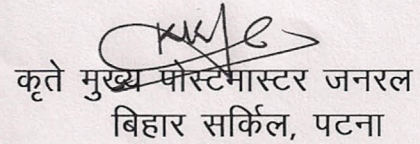 कृते मुख्य पोस्टमास्टर जनरल
बिहार सर्किल, पटना